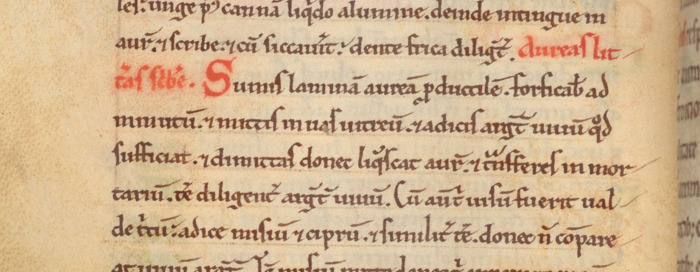 unge p̄ cannā liq̄do alumine. deinde intingue in
aur̄. ⁊ scribe. ⁊ cū siccauīt. dente frica diligt̄. Aureas lit
t̄as sc̄be. Sumis laminā aureā ꝓductilē. forficab̄ ad
minutū. ⁊ mittis in uas uitreū. ⁊ adicis argt̄ uiuū qd̄
sufficiat. ⁊ dimittas donec liq̄scat aur̄. ⁊ t̄nsferes in mor
tariū. t̄e diligent̄ argt̄ uiuū. Cū aut̄ uisū fuerit ual
de t̄tū. adice nisiū ⁊ ciprū. ⁊ similit̄ t̄e. donec n̄ cōpare
at uiuū argt̄.